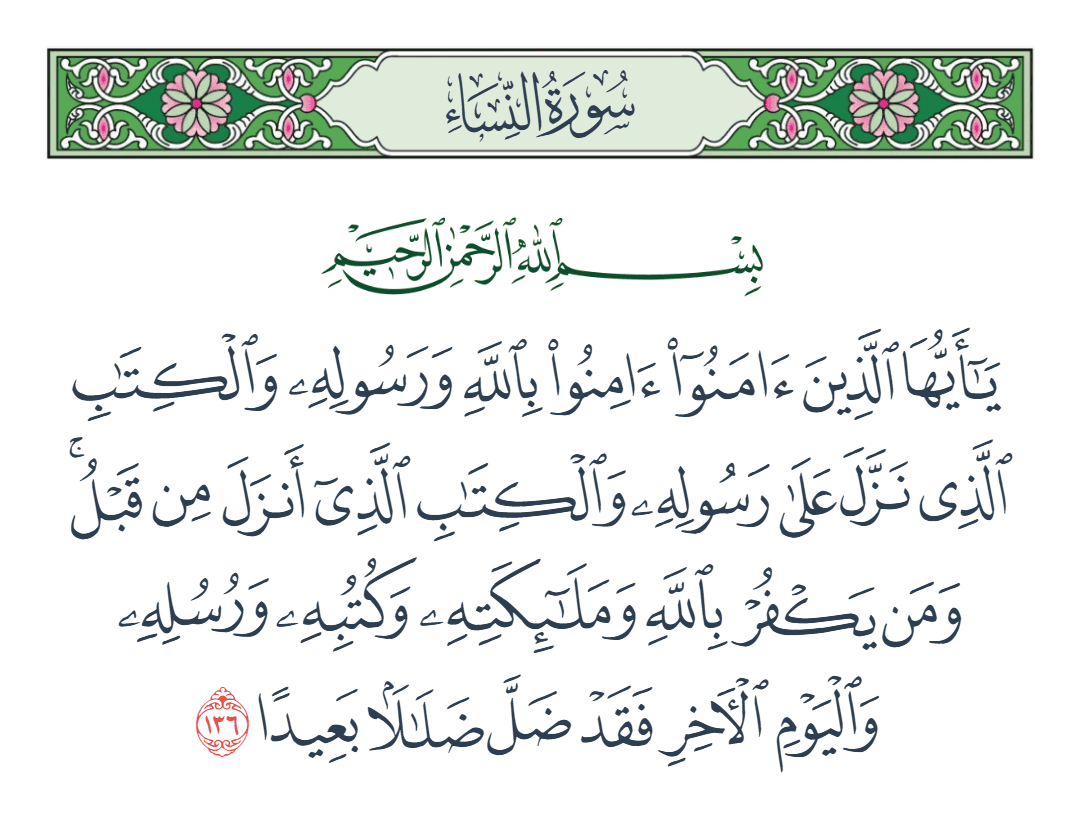 سُورَةُ النِّسَاءِ
بِسْمِ ٱللَّهِ ٱلرَّحْمَٰنِ ٱلرَّحِيمِ
يَـٰٓأَيُّهَا ٱلَّذِينَ ءَامَنُوٓا۟ ءَامِنُوا۟ بِٱللَّهِ وَرَسُولِهِۦ وَٱلْكِتَـٰبِ
ٱلَّذِى نَزَّلَ عَلَىٰ رَسُولِهِۦ وَٱلْكِتَـٰبِ ٱلَّذِىٓ أَنزَلَ مِن قَبْلُ ۚ
وَمَن يَكْفُرْ بِٱللَّهِ وَمَلَـٰٓئِكَتِهِۦ وَكُتُبِهِۦ وَرُسُلِهِۦ
وَٱلْيَوْمِ ٱلْـَٔاخِرِ فَقَدْ ضَلَّ ضَلَـٰلًۢا بَعِيدًا ١٣٦